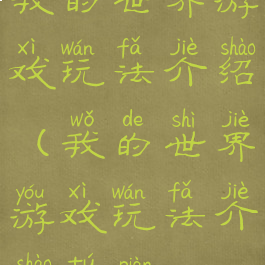 我的世界游
xì wán fǎ jiè shào
戏玩法介绍
wǒ de shì jiè
（我的世界
yóu xì wán fǎ jiè
游戏玩法介
shào tú piàn